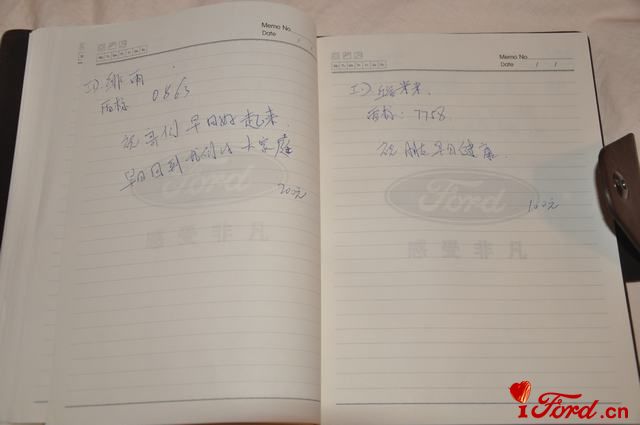 Memo No.
Date / /
ID: 绯雨
车标 0863
祝哥们早日好起来
早日回到我们的大家庭
200元
Ford
感受非凡
Memo No.
Date / /
ID:
车标: 7758
祝 早日健康
100元
Ford
感受非凡
iFord.cn